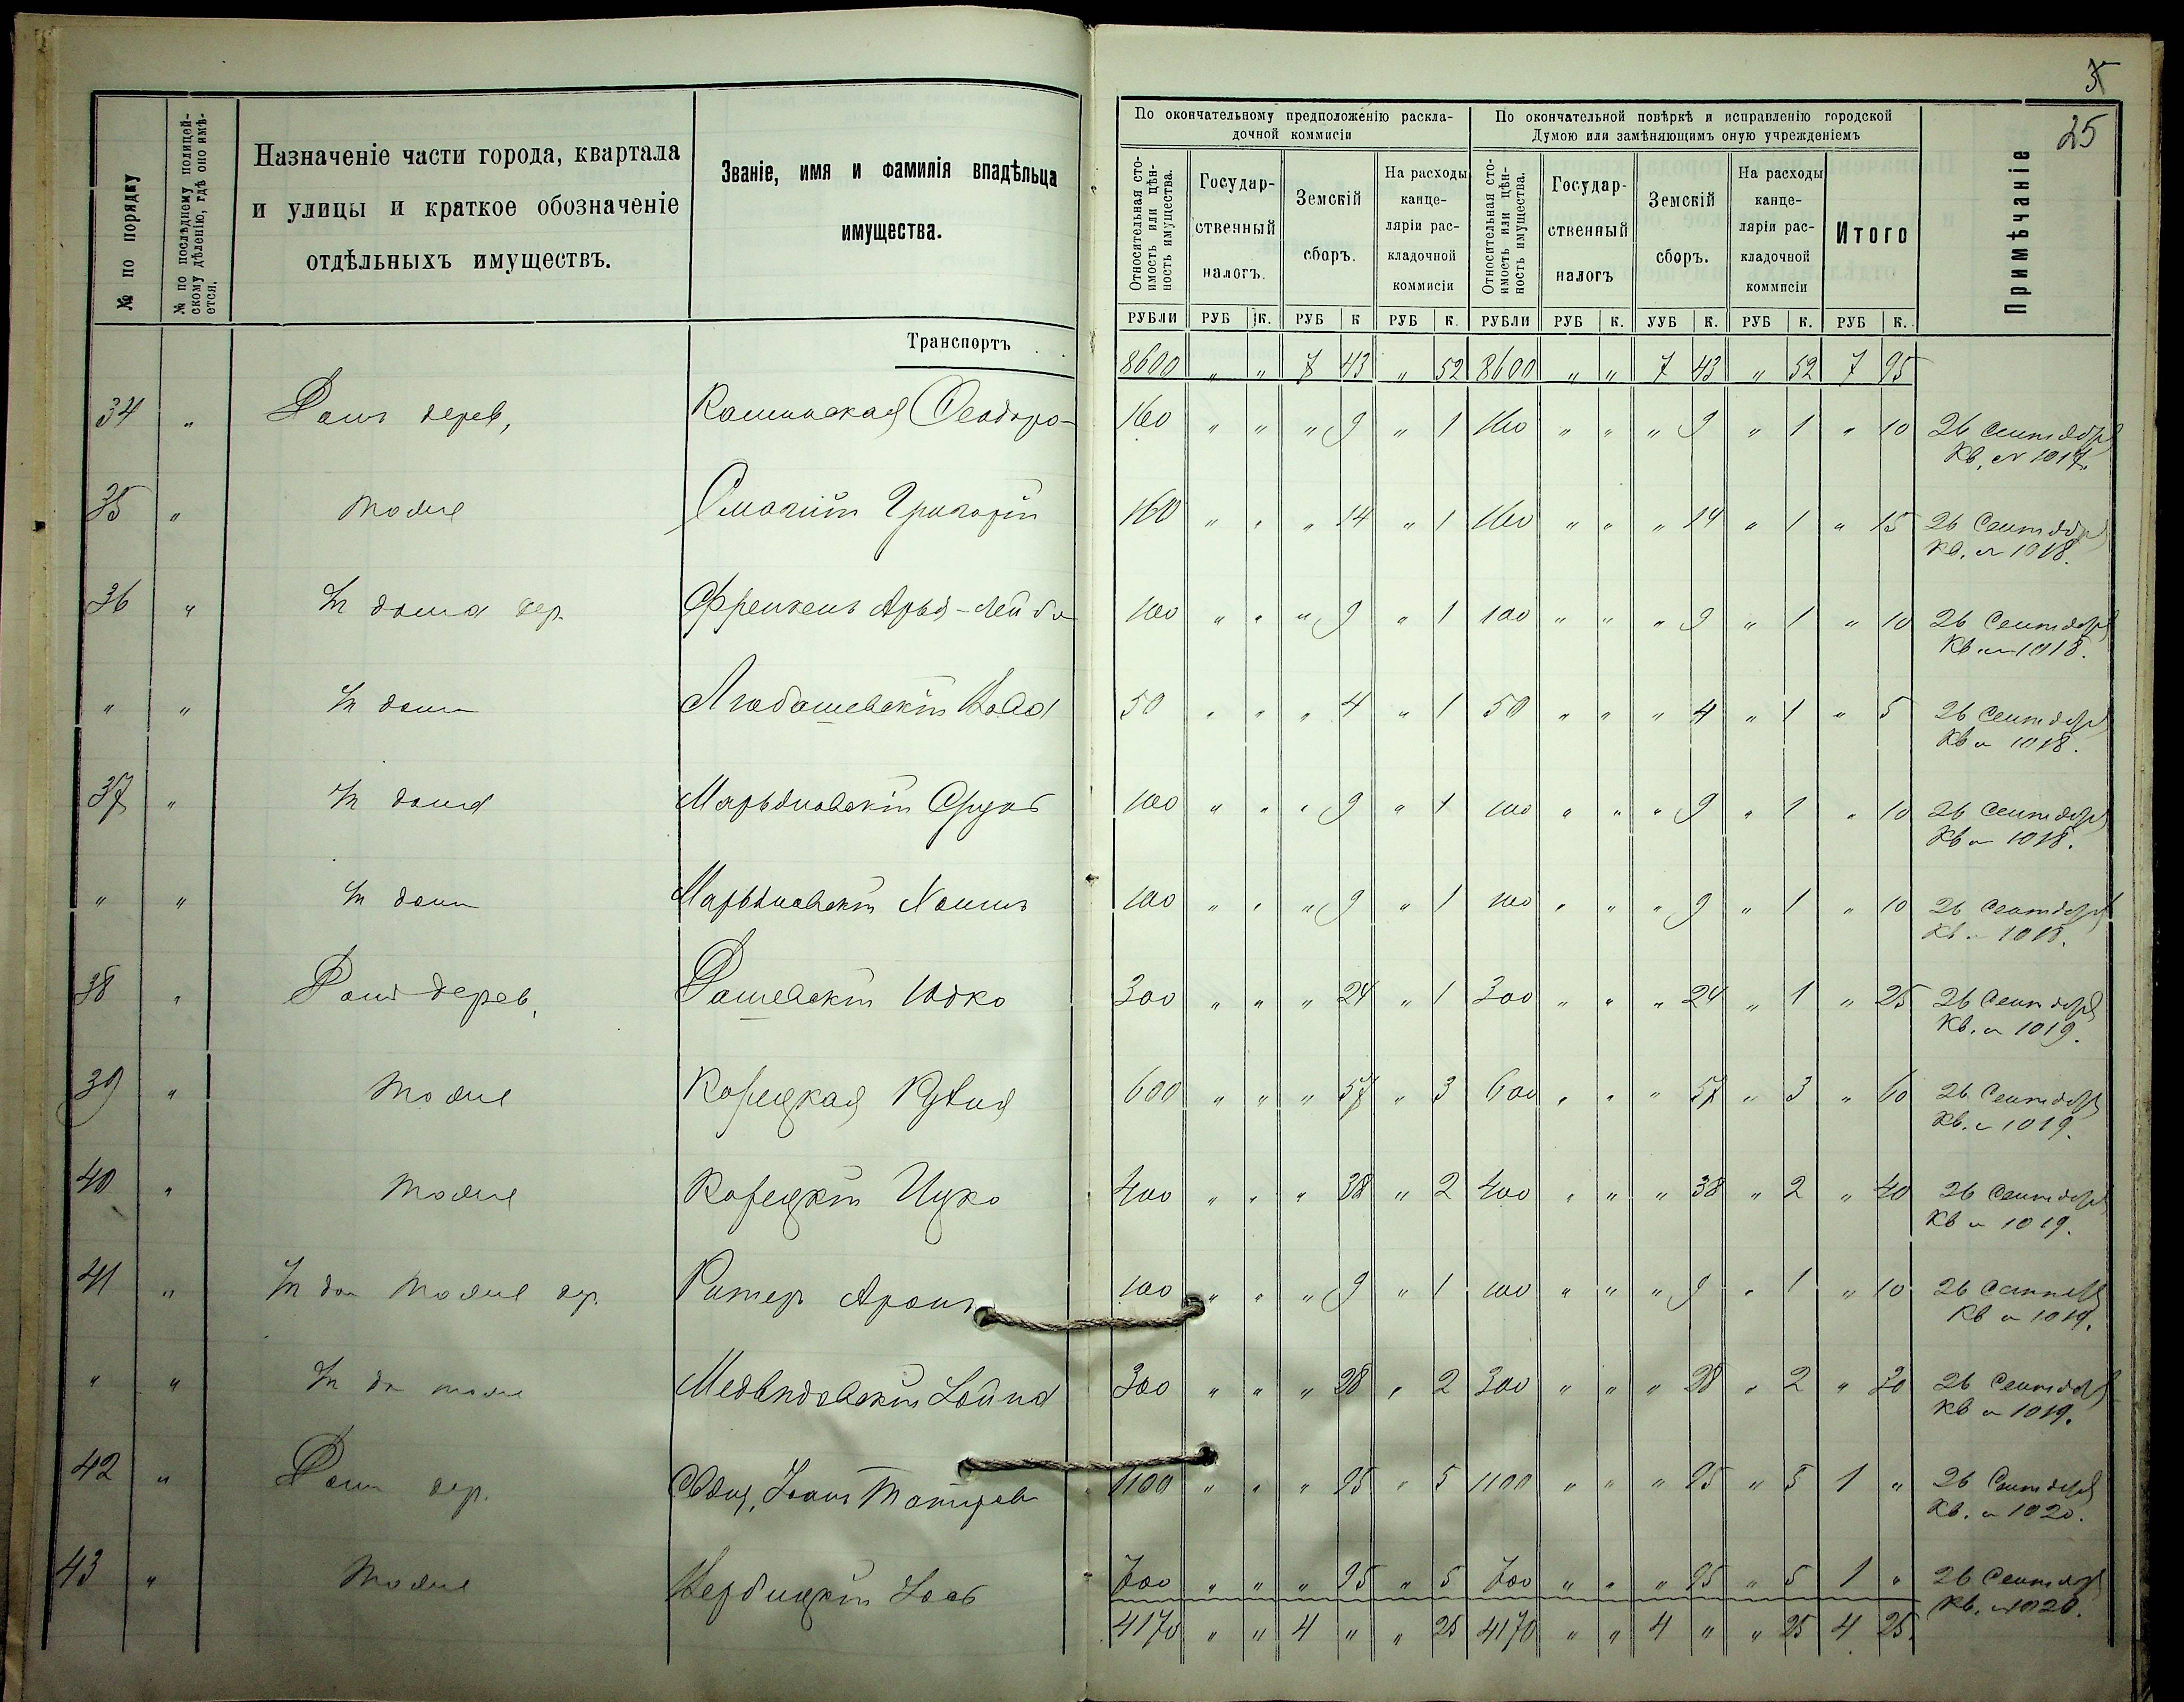 5
25
№ по порядку
№ по послѣднему полицей-
скому дѣленію, гдѣ оно имѣ-
ется.
Назначеніе части города, квартала
и улицы и краткое обозначеніе
отдѣльныхъ имуществъ.
Званіе, имя и фамилія владѣльца
имущества.
По окончательному предположенію раскла-
дочной коммисіи
По окончательной повѣркѣ и исправленію городской
Думою или замѣняющимъ оную учрежденіемъ
Примѣчаніе
Относительная сто-
имость или цѣн-
ность имущества.
Государ-
ственный
налогъ.
Земскій
сборъ.
На расходы
канце-
ляріи рас-
кладочной
коммисіи
Относительная сто-
имость или цѣн-
ность имущества.
Государ-
ственный
налогъ
Земскій
сборъ.
На расходы
канце-
ляріи рас-
кладочной
коммисіи
Итого
РУБЛИ РУБ К. РУБ К РУБ К. РУБЛИ РУБ К. УУБ К. РУБ К. РУБ К.
Транспортъ . . 8600 " " 7 43 " 52 8600 " " 7 43 " 52 7 95
34 " Домъ дерев, 160 " " " 9 " 1 160 " " " 9 " 1 " 10 26 Сентября
Кв. № 1017.
35 " тоже Григорій 160 " " " 14 " 1 160 " " " 14 " 1 " 15 26 Сентября
Кв. № 1018.
36 " дома дер. Френкель Арья-Лейба 100 " " " 9 " 1 100 " " " 9 " 1 " 10 26 Сентября
Кв № 1018.
" " дома Любашевскій 50 " " " 4 " 1 50 " " " 4 " 1 " 5 26 Сентября
Кв № 1018.
37 " дома Марьяновскій 100 " " " 9 " 1 100 " " " 9 " 1 " 10 26 Сентября
Кв № 1018.
" " дома Марьяновскій 100 " " " 9 " 1 100 " " " 9 " 1 " 10 26 Сентября
Кв № 1018.
38 " Домъ дерев, Дашевскій 300 " " " 24 " 1 300 " " " 24 " 1 " 25 26 Сентября
Кв. № 1019.
39 " тоже Корецкая 600 " " " 57 " 3 600 " " " 57 " 3 " 60 26 Сентября
Кв. № 1019.
40 " тоже Корецкій Ицко 400 " " " 38 " 2 400 " " " 38 " 2 " 40 26 Сентября
Кв № 1019.
41 " тоже дер. Аронъ 100 " " " 9 " 1 100 " " " 9 " 1 " 10 26 Сентяб
Кв № 1019.
" " тоже Медвидовскій 300 " " " 28 " 2 300 " " " 28 " 2 " 30 26 Сентября
Кв № 1019.
42 " Домъ дер. 1100 " " " 95 " 5 1100 " " " 95 " 5 1 " 26 Сентября
Кв. № 1020.
43 " тоже Вербицкій 700 " " " 95 " 5 700 " " " 95 " 5 1 " 26 Сентября
Кв. № 1020.
4170 " " 4 " " 25 4170 " " 4 " " 25 4 25.